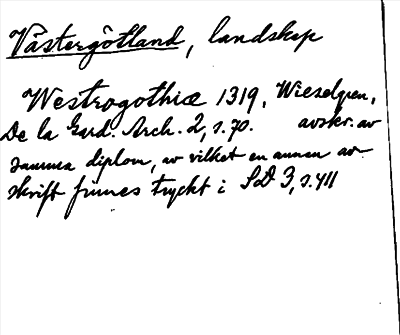 Västergötland, landskap
Westrogothiæ 1319, Wieselgren,
De la Gard. Arch. 2, s. 70. avskr. av
samma diplom, av vilket en annan av-
skrift finnes tryckt i SD 3, s. 411